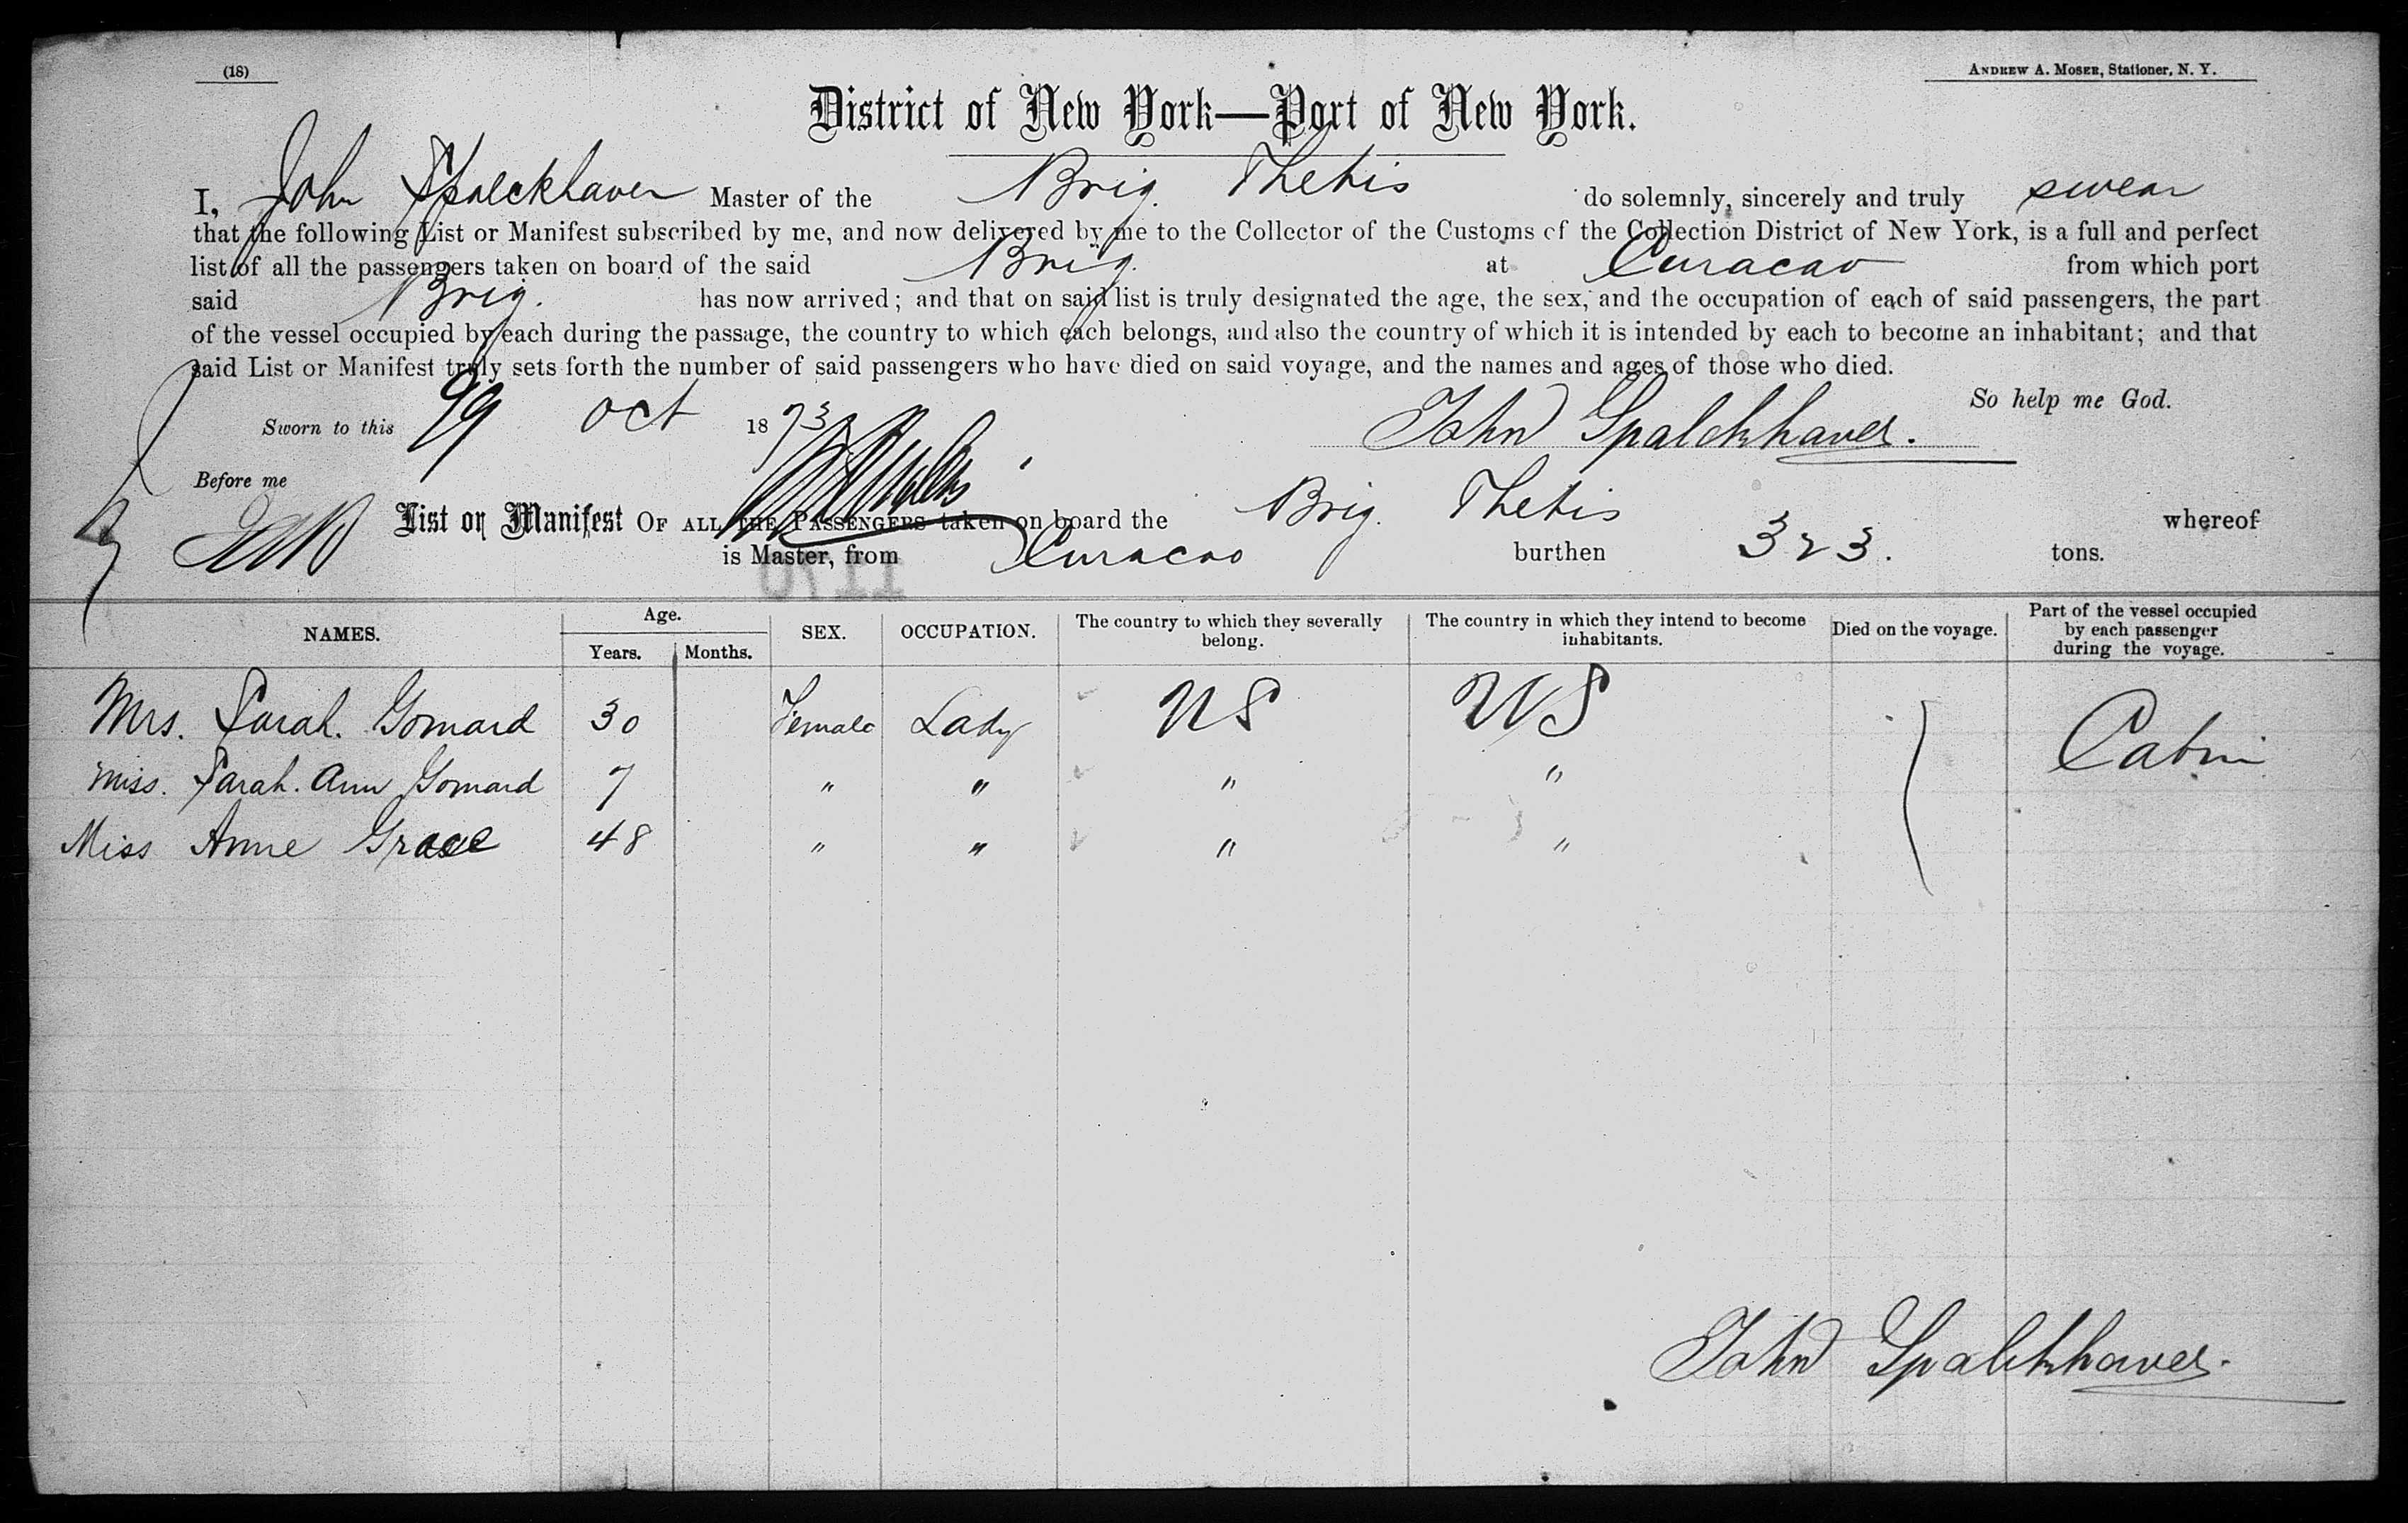 (18)
ANDREW A. MOSER, Stationer, N. Y.
District of New York—Port of New York.
I, John Spalckhaver Master of the Brig. Thetis do solemnly, sincerely and truly swear
that the following List or Manifest subscribed by me, and now delivered by me to the Collector of the Customs of the Collection District of New York, is a full and perfect
list of all the passengers taken on board of the said Brig. at Curacao from which port
said Brig. has now arrived; and that on said list is truly designated the age, the sex, and the occupation of each of said passengers, the part
of the vessel occupied by each during the passage, the country to which each belongs, and also the country of which it is intended by each to become an inhabitant; and that
said List or Manifest truly sets forth the number of said passengers who have died on said voyage, and the names and ages of those who died.
So help me God.
Sworn to this Oct 1873
John Spalckhaver.
Before me
List or Manifest OF ALL THE PASSENGERS taken on board the Brig. Thetis whereof
is Master, from Curacao burthen 323. tons.
NAMES. Age. Years. Months. SEX. OCCUPATION. The country to which they severally belong. The country in which they intend to become inhabitants. Died on the voyage. Part of the vessel occupied by each passenger during the voyage.
Mrs. Sarah. Gomard 30 Female Lady US US Cabin
Miss. Sarah. Ann Gomard 7 " " " "
Miss Anne Grace 48 " " " "
John Spalckhaver.